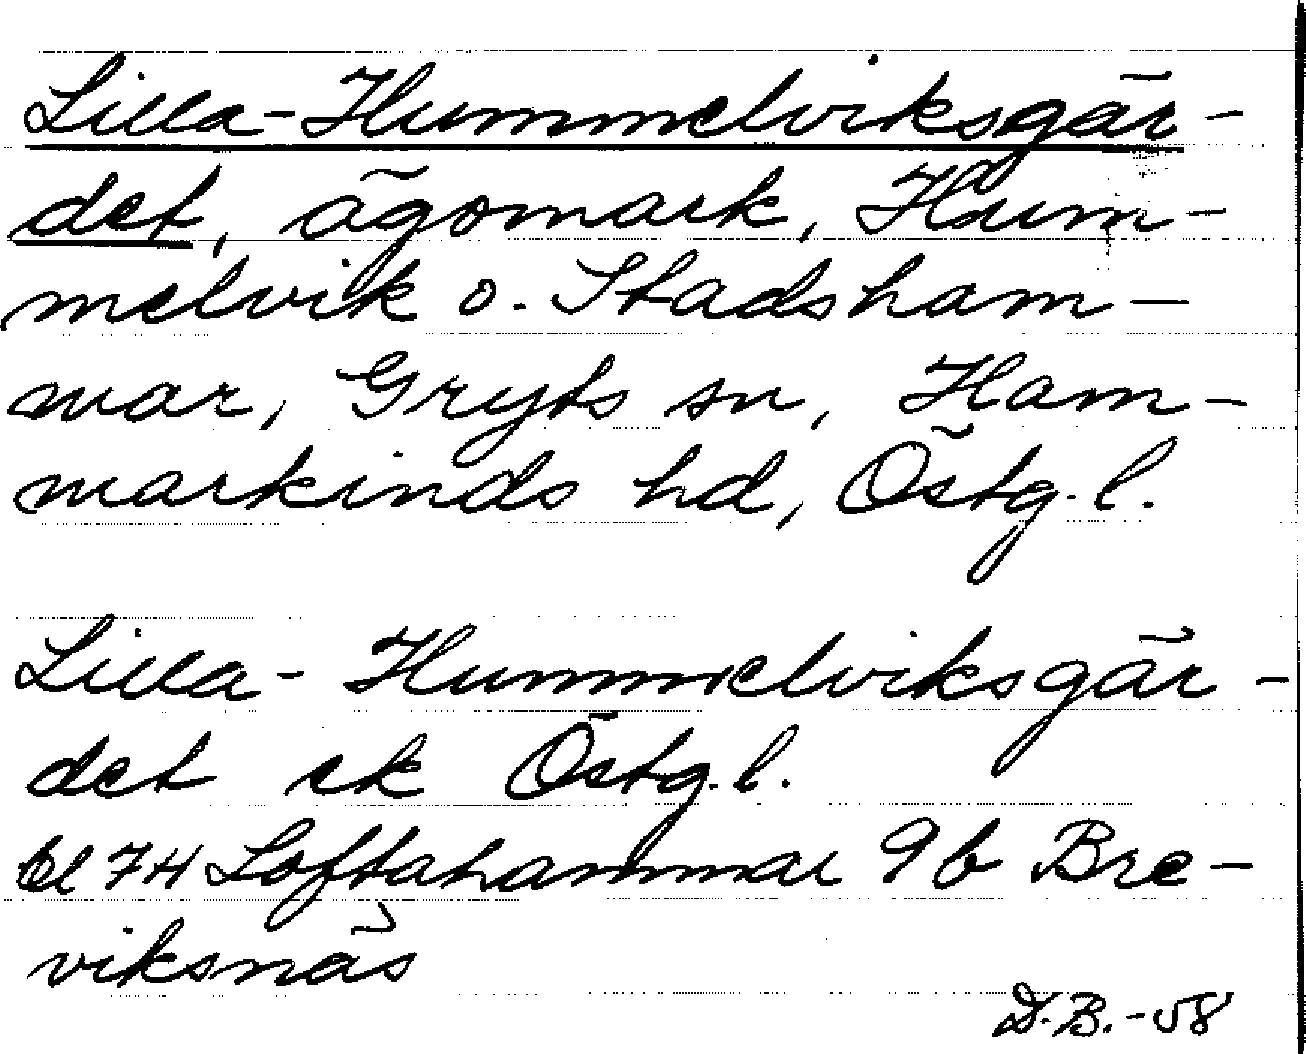 Lilla-Hummelviksgär-
det, ägomark, Hum-
melvik o. Stadsham-
mar, Gryts sn, Ham-
markinds hd, Östg.l.
Lilla-Hummelviksgär-
det ek Östg.l.
bl 7H Loftahammar 9b Bre-
viksnäs
D.B.-58